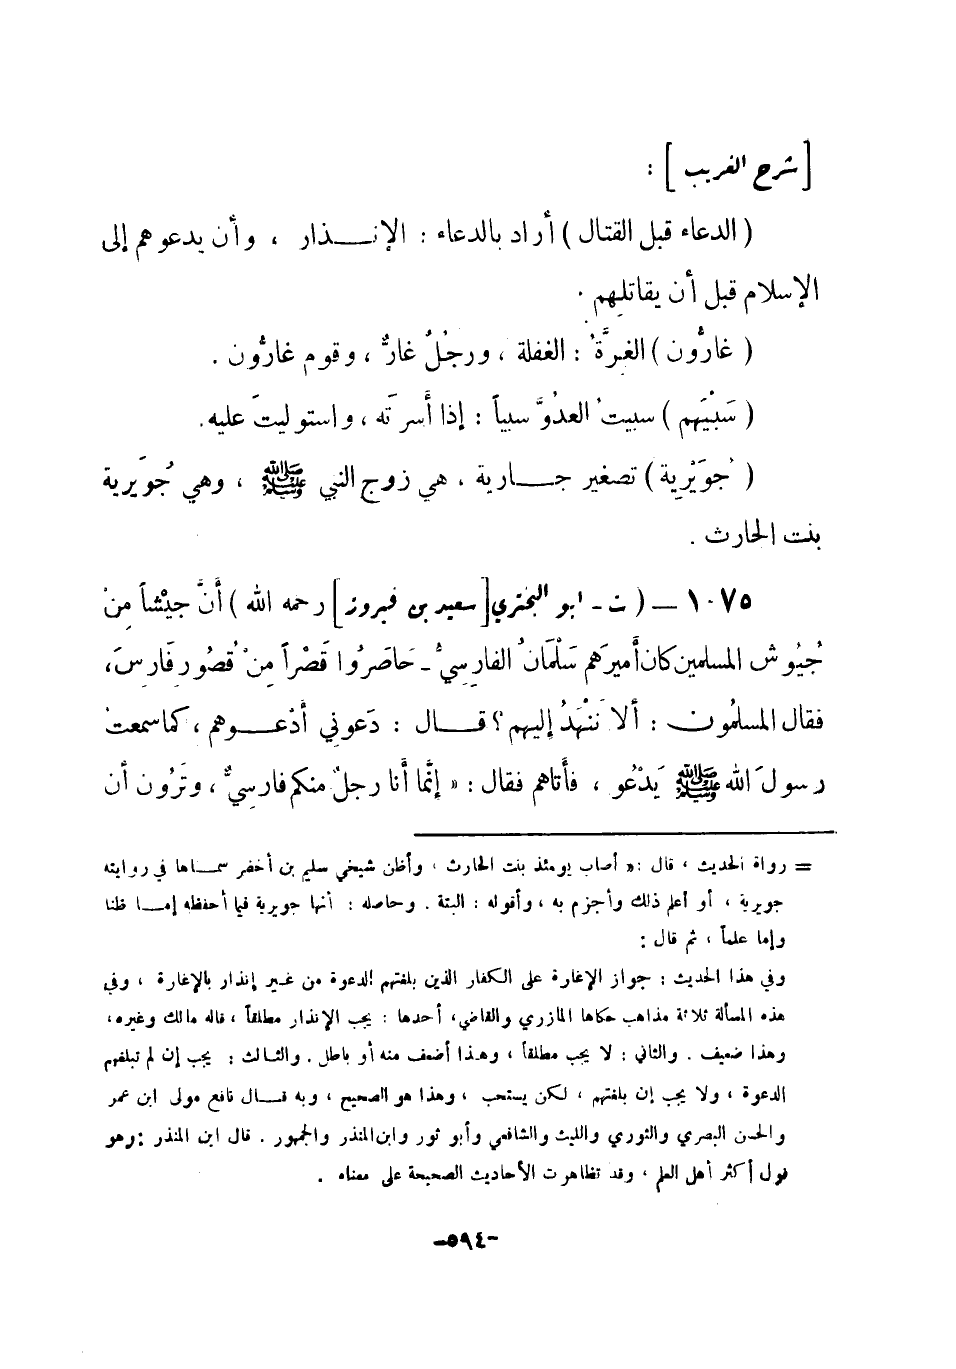 [ شرح الغريب ] :
( الدعاء قبل القتال ) أراد بالدعاء : الإنـــذار ، وأن يدعوهم إلى
الإسلام قبل أن يقاتلهم .
( غارُّون ) الغِرَّةُ : الغفلة ، ورجُلٌ غارٌّ ، وقوم غارُّون .
( سَبْيَهم ) سبيتُ العدُوَّ سبياً : إذا أَسرتَه ، واستوليتَ عليه.
( جُوَيْرِية ) تصغير جـــارية ، هي زوج النبي ﷺ ، وهي جُوَيرية
بنت الحارث .
١٠٧٥ — ( ت - ابو البختري [ سعيد بن فيروز ] رحمه الله ) أَنَّ جيْشاً مِنْ
جُيُوش المسلمين كان أميرَهم سَلْمَانُ الفارِسيُّ - حَاصَرُوا قَصْراً مِنْ قُصُورِ فَارِسَ،
فقال المسلمُون : ألا نَنْهَدُ إليهم ؟ قـــال : دَعوني أَدْعـــوهم ، كما سمعتُ
رسولَ الله ﷺ يَدْعُو ، فأَتاهم فقال : « إنَّما أَنا رجلٌ منكم فارسيٌّ ، وتَرَون أن
= رواة الحديث ، قال : « أصاب يومئذ بنت الحارث ، وأظن شيخي سليم بن أخضر سمـــاها في روايته
جويرية ، أو أعلم ذلك وأجزم به ، وأقوله : البتة . وحاصله : أنها جويرية فيما أحفظه إمـــا ظنا
وإما علماً ، ثم قال :
وفي هذا الحديث : جواز الإغارة على الكفار الذين بلغتهم الدعوة من غـير إنذار بالإغارة ، وفي
هذه المسألة ثلاثة مذاهب حكاها المازري والقاضي، أحدها : يجب الإنذار مطلقاً ، قاله مالك وغيره،
وهذا ضعيف . والثاني : لا يجب مطلقاً ، وهـذا أضعف منه أو باطل . والثـالث : يجب إن لم تبلغهم
الدعوة ، ولا يجب إن بلغتهم ، لكن يستحب ، وهذا هو الصحيح ، وبه قـــال نافع مولى ابن عمر
والحسن البصري والثوري والليث والشافعي وأبو ثور وابن المنذر والجمهور . قال ابن المنذر : وهو
قول أكثر أهل العلم ، وقد تظاهرت الأحاديث الصحيحة على معناه .
-٥٩٤-